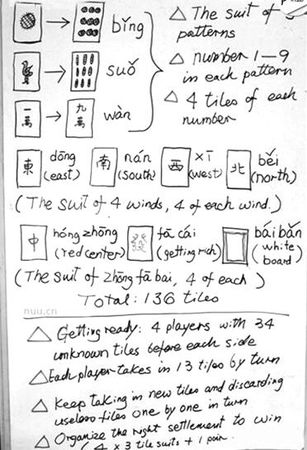 bǐng
suǒ
一萬 九萬 wàn
△ The suit of patterns
△ number 1-9 in each pattern
△ 4 tiles of each number
東 dōng (east) 南 nán (south) 西 xī (west) 北 běi (north)
(The suit of 4 winds, 4 of each wind.)
中 hóng zhōng (red center) 發 fā cái (getting rich) bái bǎn (white board)
(The suit of zhōng fā bái, 4 of each)
Total: 136 tiles
nuu.cn
△ Getting ready: 4 players with 34
unknown tiles before each side
△ Each player takes in 13 tiles by turn
△ Keep taking in new tiles and discarding
useless tiles one by one in turn
△ Organize the right settlement to win
(4 × 3 tile suits + 1 pair